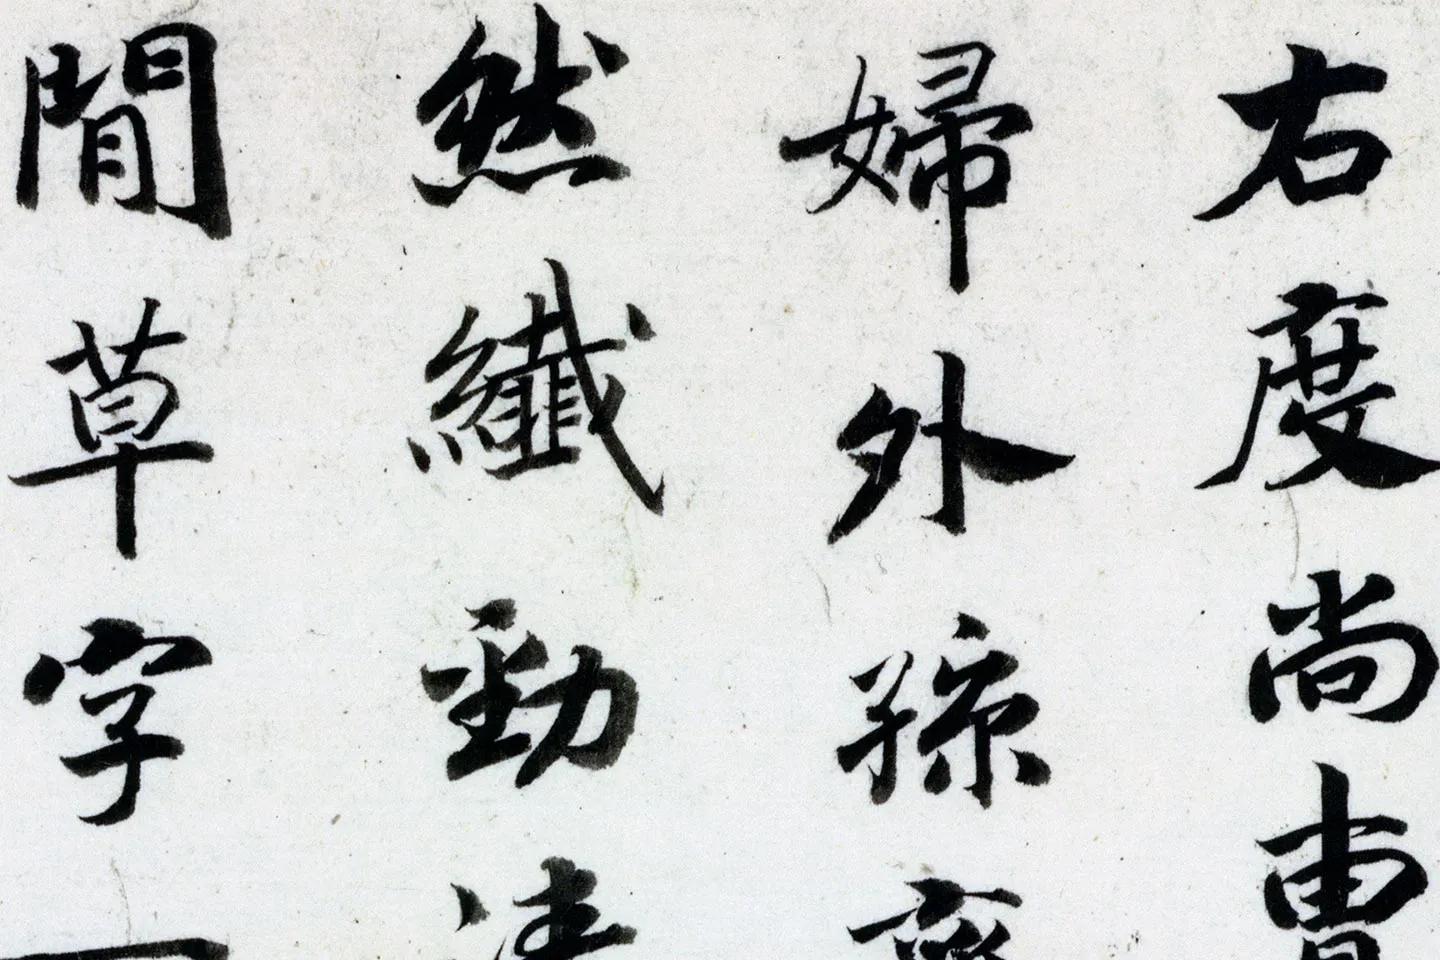 右度尚曹
婦外孫
然纖勁清
間草字